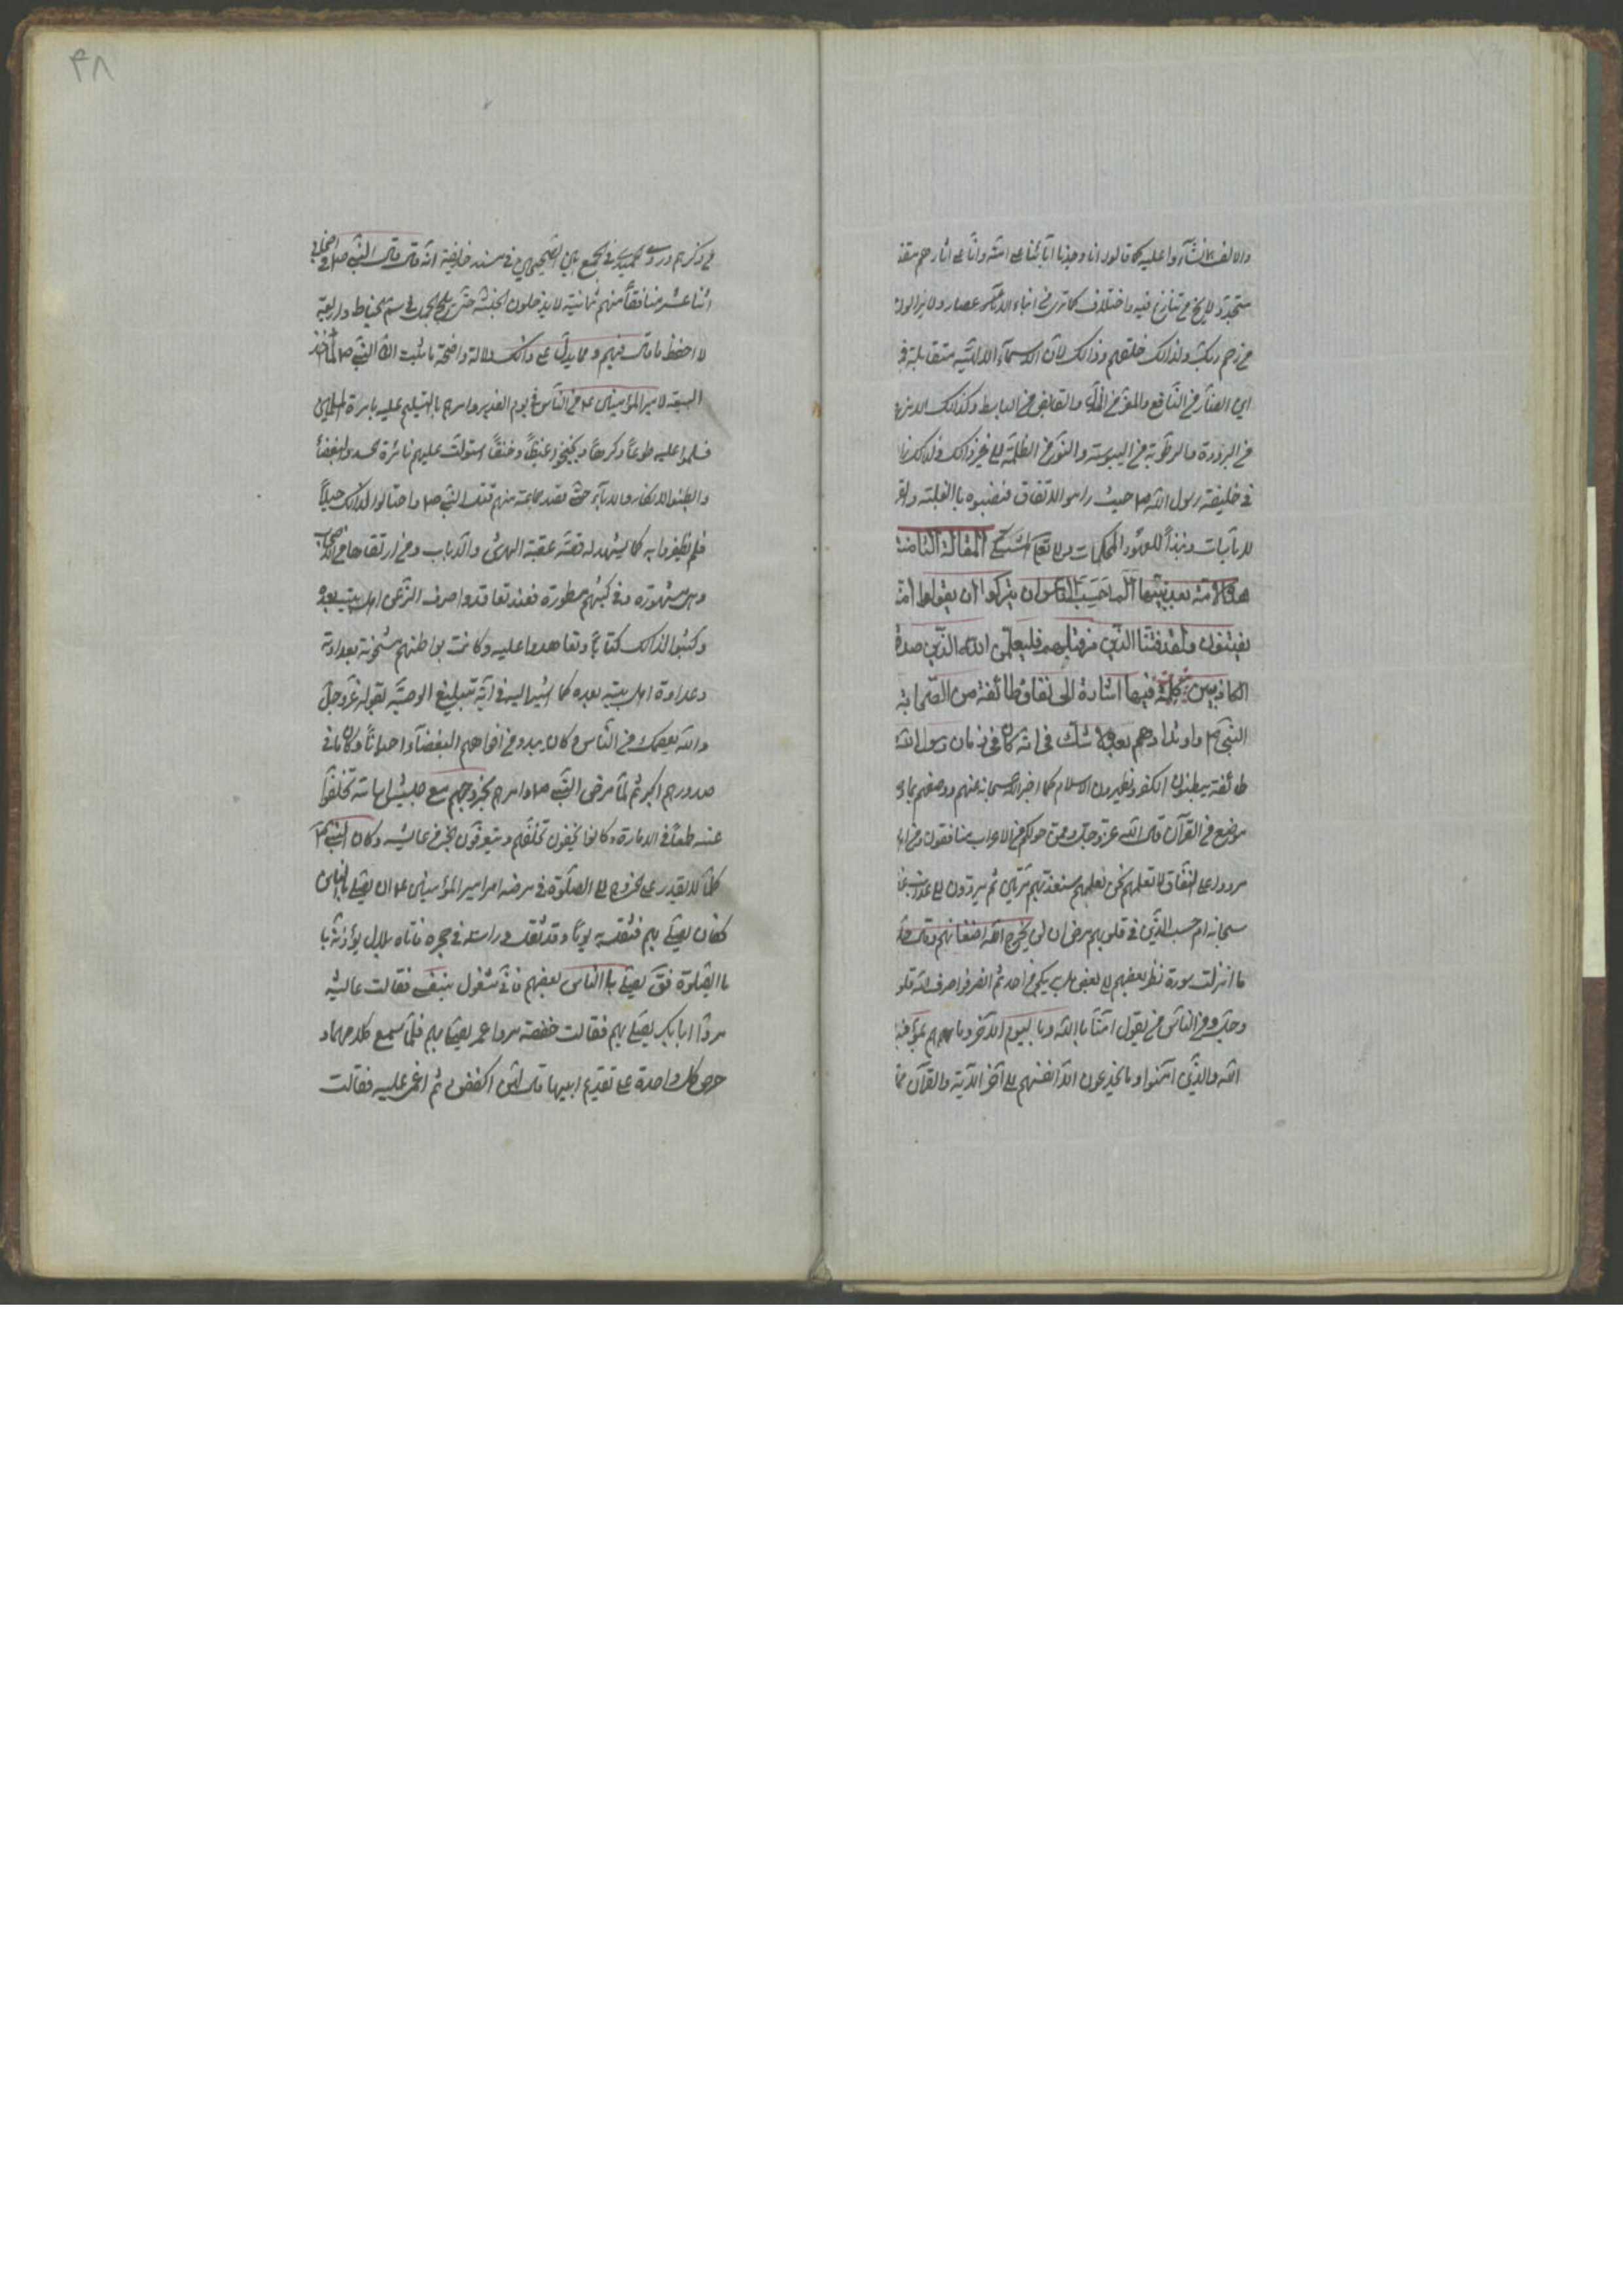 والالف لما نشأوا عليه كما قالوا انا وجدنا آبائنا على امة وانا على اثارهم مقتد
متجدد لا يخ من تنازع فيه واختلاف كما ترى في ابناء الاعصار ولا يزالون
من رحم ربك ولذلك خلقهم وذلك لان الاسماء الالهية متقابلة
اين الضار من النافع والمعز من المذل والقابض من الباسط وكذلك
من البرودة والرطوبة من اليبوسة والنور من الظلمة الى غير ذلك ولذلك
في خليفة رسول الله ص حيث راموا الاتفاق فنصبوه بالغلبة
للايات ونبذا للعهود المحكمات ولا تغلب المقالة الثامنة
هذه الامة بعد نبيها ألم احسب الناس ان يتركوا ان يقولوا امنا
يفتنون ولقد فتنا الذين من قبلهم فليعلمن الله الذين صدقوا
الكاذبين كلمة فيها اشارة الى نفاق طائفة من الصحابة
النبي ص وارتدادهم بعده لا شك في انه كان في زمان رسول الله
طائفة يبطنون الكفر ويظهرون الاسلام كما اخبر الله سبحانه عنهم ووصفهم
موضع من القرآن قال الله عز وجل وممن حولكم من الاعراب منافقون ومن اهل
مردوا على النفاق لا تعلمهم نحن نعلمهم سنعذبهم مرتين ثم يردون الى عذاب
سبحانه ام حسب الذين في قلوبهم مرض ان لن يخرج الله اضغانهم وقال
ما انزلت سورة نظر بعضهم الى بعض هل يريكم من احد ثم انصرفوا صرف الله قلو
وجل ومن الناس من يقول امنا بالله وباليوم الآخر وما هم بمؤمنين
الله والذين آمنوا وما يخدعون الا انفسهم الى آخر الآية والقرآن
٣٨
من ذكرهم وروى الحميدي في الجمع بين الصحيحين في مسند حذيفة انه قال قال النبي ص في اصحابي
اثنا عشر منافقا منهم ثمانية لا يدخلون الجنة حتى يلج الجمل في سم الخياط واربعة
لا احفظ ما قال فيهم ومما يدل على ذلك دلالة واضحة ما ثبت ان النبي ص لما اخذ
البيعة لامير المؤمنين ع من الناس في يوم الغدير وامرهم بالتسليم عليه بامرة المؤمنين
فسلموا عليه طوعا وكرها وبخبخوا غيظا وحنقا استولت عليهم نائرة الحسد والبغضاء
وابطنوا الانكار والاباء حتى قصد جماعة منهم قتل النبي ص واحتالوا لذلك حيلا
فلم يظفروا به كما يشهد له قصة عقبة الهرشى والدباب ومن ارتقاها من الاصحاب
وهي مشهورة وفي كتبهم مسطورة فعند تعاقدوا صرف الامر عن اهل بيته بعده
وكتبوا لذلك كتابا وتعاهدوا عليه وكانت بواطنهم مشحونة بعداوته
وعداوة اهل بيته بعده كما اشير اليه في آية تبليغ الوصية بقوله عز وجل
والله يعصمك من الناس وكان يبدو من افواههم البغضاء احيانا وكان ما في
صدورهم اكبر ثم لما مرض النبي ص وامرهم بخروجهم مع جيش اسامة تخلفوا
عنه طمعا في الامارة وكانوا يخفون تخلفهم ويتعرفون الخبر من عايشة وكان النبي ص
لما لا يقدر على الخروج الى الصلوة في مرضه امر امير المؤمنين ع ان يصلي بالناس
فكان يصلي بهم فثقل يوما وقد ثقل وراسه في حجره فاتاه بلال يؤذنه با
بالصلوة فق يصلي بالناس بعضهم فاني مشغول بنفسي فقالت عايشة
مروا ابا بكر يصلي بهم فقالت حفصة مروا عمر يصلي بهم فلما سمع كلامهما و
حرص كل واحدة على تقديم ابيها قال لهن اكففن ثم اغمى عليه فقالت